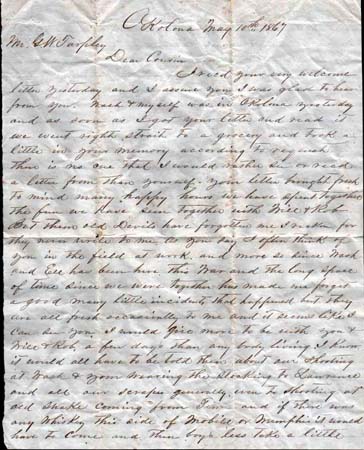 Okolona May 10th 1867
Mr. G.W. Tarpley
Dear Cousin
I recd your very welcome
letter yesterday and I assure you I was glad to hear
from you. Wash & myself was in Okolona yesterday
and as soon as I got your letter and read it
we went right strait to a grocery and took a
little in your memory according to request
there is no one that I would rather see or read
a letter from than yourself. your letter brought fresh
to mind many happy hours we have spent together
the fun we have seen together with Will & Rob
But them old Devils have forgotten me I reckon for
they never write to me As you say I often think of
you in the field at work. and more so since Wash
and has been here this and the long space
of time since we were together has made me forget
a good many little incidents that happened but they
are all fresh occasionally to me and it seems like I
can see you I would give more to be with you &
Will & Rob a few days than any body living I know
it would all have to be told then about our Shooting
at Wash & your wearing the to
and all our scrapes generally even to Shooting
old Snake coming from and if there was
any Whiskey this side of Mobile or Memphis it would
have to Come and then boys less take a little